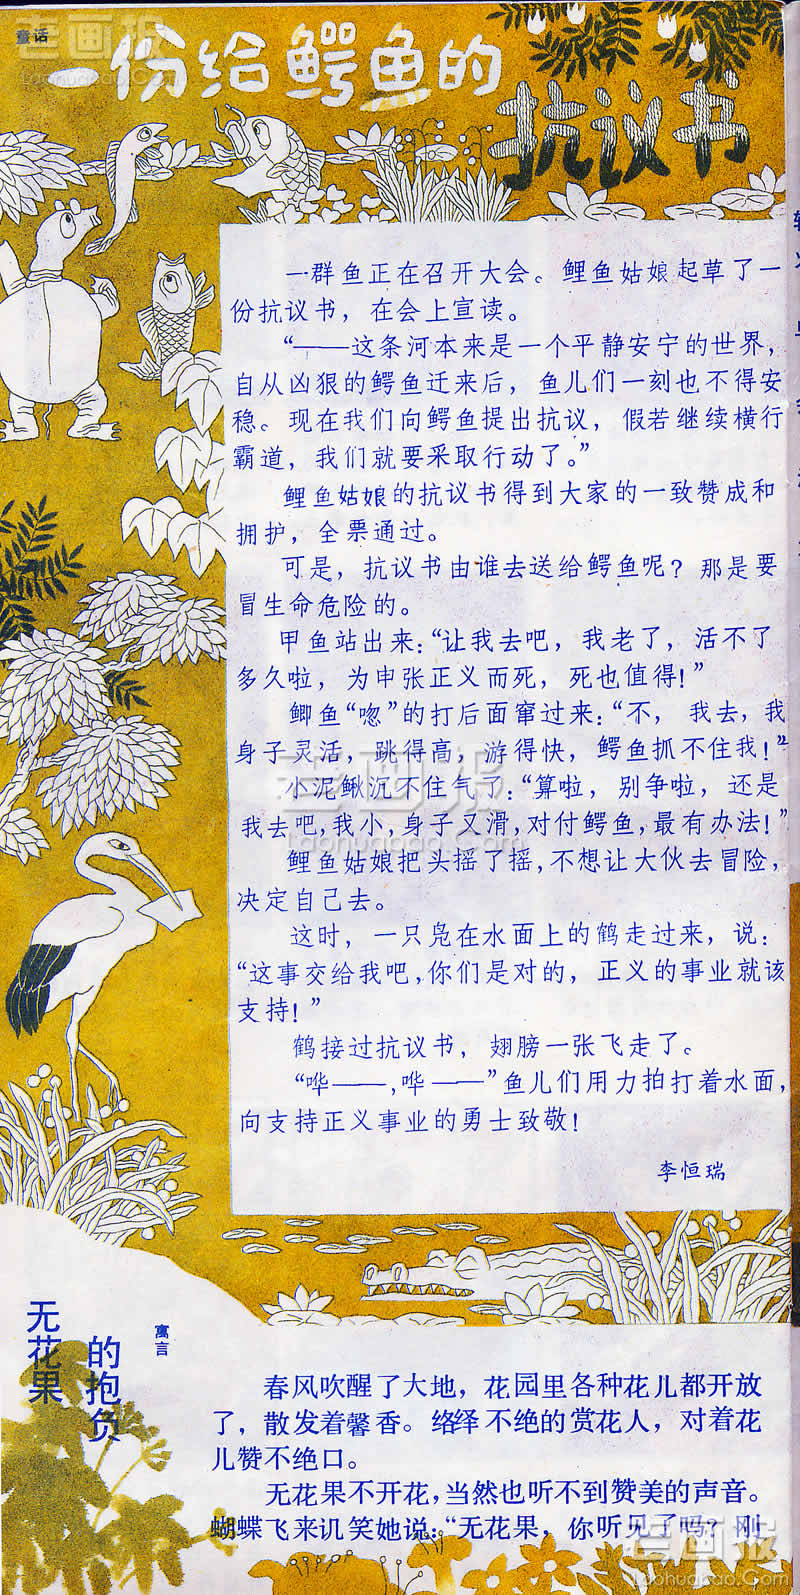 童话
一份给鳄鱼的
抗议书
一群鱼正在召开大会。鲤鱼姑娘起草了一
份抗议书，在会上宣读。
“——这条河本来是一个平静安宁的世界，
自从凶狠的鳄鱼迁来后，鱼儿们一刻也不得安
稳。现在我们向鳄鱼提出抗议，假若继续横行
霸道，我们就要采取行动了。”
鲤鱼姑娘的抗议书得到大家的一致赞成和
拥护，全票通过。
可是，抗议书由谁去送给鳄鱼呢？那是要
冒生命危险的。
甲鱼站出来：“让我去吧，我老了，活不了
多久啦，为申张正义而死，死也值得！”
鲫鱼“唿”的打后面窜过来：“不，我去，我
身子灵活，跳得高，游得快，鳄鱼抓不住我！”
小泥鳅沉不住气了：“算啦，别争啦，还是
我去吧，我小，身子又滑，对付鳄鱼，最有办法！”
鲤鱼姑娘把头摇了摇，不想让大伙去冒险，
决定自己去。
这时，一只凫在水面上的鹤走过来，说：
“这事交给我吧，你们是对的，正义的事业就该
支持！”
鹤接过抗议书，翅膀一张飞走了。
“哗——，哗——”鱼儿们用力拍打着水面，
向支持正义事业的勇士致敬！
李恒瑞
寓言
无花果
的抱负
春风吹醒了大地，花园里各种花儿都开放
了，散发着馨香。络绎不绝的赏花人，对着花
儿赞不绝口。
无花果不开花，当然也听不到赞美的声音。
蝴蝶飞来讥笑她说：“无花果，你听见了吗？刚
老画报
Laohuabao.Com